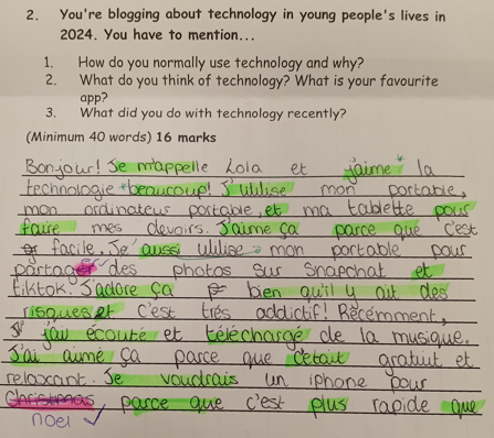 2. You're blogging about technology in young people's lives in
2024. You have to mention...
1. How do you normally use technology and why?
2. What do you think of technology? What is your favourite
app?
3. What did you do with technology recently?
(Minimum 40 words) 16 marks
Bonjour! Je m'appelle Lola et j'aime la
technologie beaucoup! J'utilise mon portable,
mon ordinateur portable, et ma tablette pour
faire mes devoirs. J'aime ça parce que c'est
facile. Je aussi utilise mon portable pour
partager des photos sur Snapchat et
tiktok. J'adore ça bien qu'il y ait des
risques et c'est trés addictif! Récemment,
j'ai écouté et téléchargé de la musique.
J'ai aimé ça parce que c'etait gratuit et
relaxant. Je voudrais un iphone pour
Christmas parce que c'est plus rapide que
noel